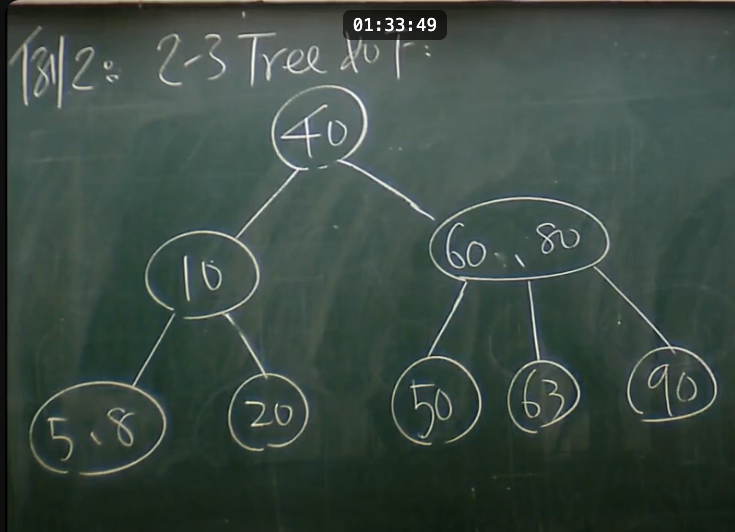 01:33:49
例2: 2-3 Tree 如下:
40
10 60、80
5、8 20 50 63 90